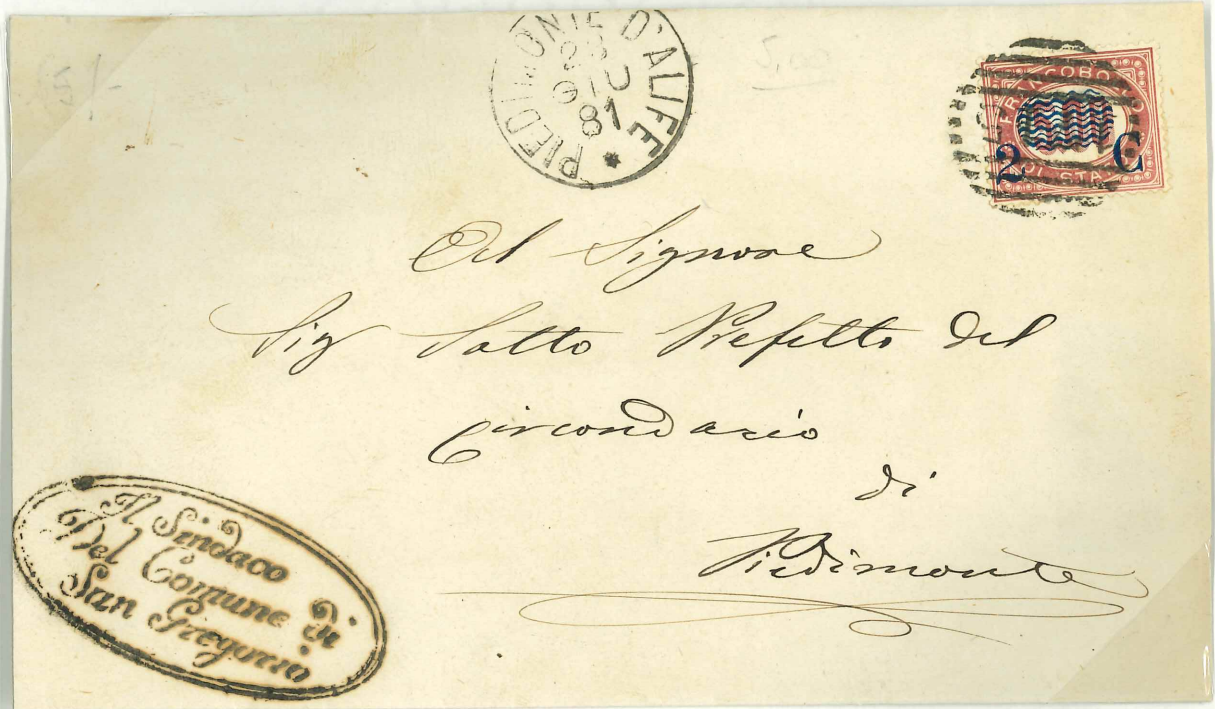 PIEDIMONTE D'ALIFE
23
GIU
81
5,00
5/-
FRANCOBOLLO
2 C
DI STATO
Al Signore
Sig Sotto Prefetto del
Circondario
di
Piedimonte
Il Sindaco
Del Comune di
San Gregorio